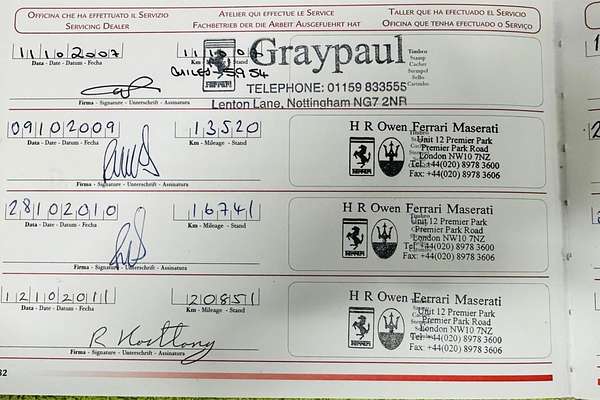 OFFICINA CHE HA EFFETTUATO IL SERVIZIO
SERVICING DEALER
ATELIER QUI EFFECTUE LE SERVICE
FACHBETRIEB DER DIE ARBEIT AUSGEFUEHRT HAT
TALLER QUE HA EFECTUADO EL SERVICIO
OFICINA QUE TENHA EFECTUADO O SERVIÇO
11102007
Data - Date - Datum - Fecha
Firma - Signature - Unterschrift - Assinatura
5954
Km - Mileage - Stand
Graypaul
TELEPHONE: 01159 833555
Lenton Lane, Nottingham NG7 2NR
Timbro
Stamp
Cachet
Stempel
Sello
Carimbo
09102009
Data - Date - Datum - Fecha
Firma - Signature - Unterschrift - Assinatura
13520
Km - Mileage - Stand
H R Owen Ferrari Maserati
Unit 12 Premier Park
Premier Park Road
London NW10 7NZ
Tel: +44(020) 8978 3600
Fax: +44(020) 8978 3606
28102010
Data - Date - Datum - Fecha
Firma - Signature - Unterschrift - Assinatura
16741
Km - Mileage - Stand
H R Owen Ferrari Maserati
Unit 12 Premier Park
Premier Park Road
London NW10 7NZ
Tel: +44(020) 8978 3600
Fax: +44(020) 8978 3606
12102011
Data - Date - Datum - Fecha
Firma - Signature - Unterschrift - Assinatura
20851
Km - Mileage - Stand
H R Owen Ferrari Maserati
Unit 12 Premier Park
Premier Park Road
London NW10 7NZ
Tel: +44(020) 8978 3600
Fax: +44(020) 8978 3606
32